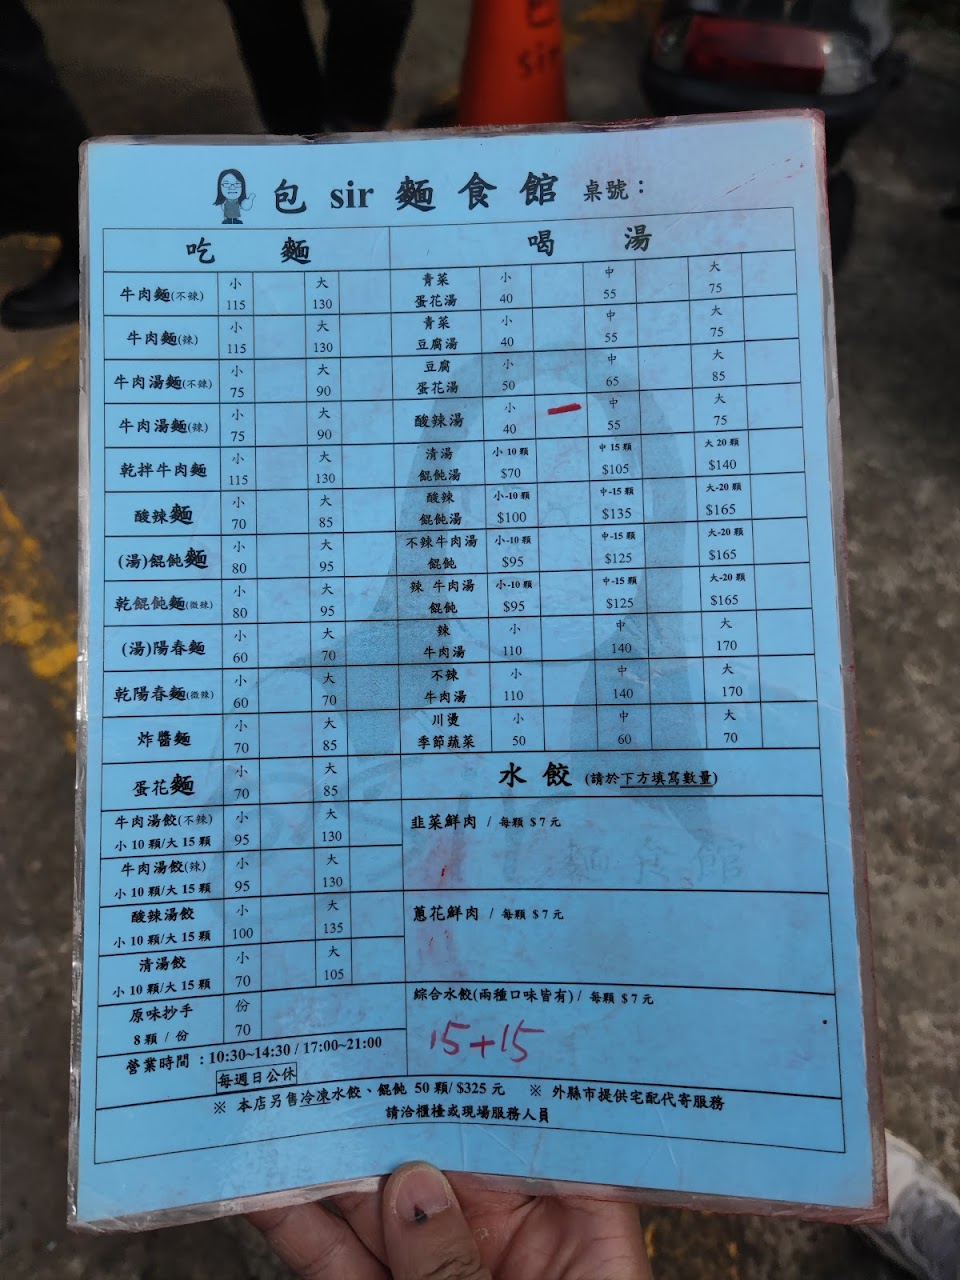 包
sir
包 sir 麵 食 館 桌號：
吃 麵
牛肉麵(不辣) 小 115 大 130
牛肉麵(辣) 小 115 大 130
牛肉湯麵(不辣) 小 75 大 90
牛肉湯麵(辣) 小 75 大 90
乾拌牛肉麵 小 115 大 130
酸辣麵 小 70 大 85
(湯)餛飩麵 小 80 大 95
乾餛飩麵(微辣) 小 80 大 95
(湯)陽春麵 小 60 大 70
乾陽春麵(微辣) 小 60 大 70
炸醬麵 小 70 大 85
蛋花麵 小 70 大 85
牛肉湯餃(不辣) 小 95 大 130
小 10 顆/大 15 顆
牛肉湯餃(辣) 小 95 大 130
小 10 顆/大 15 顆
酸辣湯餃 小 100 大 135
小 10 顆/大 15 顆
清湯餃 小 70 大 105
小 10 顆/大 15 顆
原味抄手 份 70
8 顆 / 份
營業時間：10:30~14:30 / 17:00~21:00
每週日公休
喝 湯
青菜 小 中 大
蛋花湯 40 55 75
青菜 小 中 大
豆腐湯 40 55 75
豆腐 小 中 大
蛋花湯 50 65 85
酸辣湯 小 40 一 中 55 大 75
清湯 小 10 顆 中 15 顆 大 20 顆
餛飩湯 $70 $105 $140
酸辣 小-10 顆 中-15 顆 大-20 顆
餛飩湯 $100 $135 $165
不辣牛肉湯 小-10 顆 中-15 顆 大-20 顆
餛飩 $95 $125 $165
辣 牛肉湯 小-10 顆 中-15 顆 大-20 顆
餛飩 $95 $125 $165
辣 小 中 大
牛肉湯 110 140 170
不辣 小 中 大
牛肉湯 110 140 170
川燙 小 中 大
季節蔬菜 50 60 70
水 餃 (請於下方填寫數量)
韭菜鮮肉 / 每顆 $7 元
麵食館
蔥花鮮肉 / 每顆 $7 元
綜合水餃(兩種口味皆有) / 每顆 $7 元
15+15
※ 本店另售冷凍水餃、餛飩 50 顆/ $325 元 ※ 外縣市提供宅配代寄服務
請洽櫃檯或現場服務人員